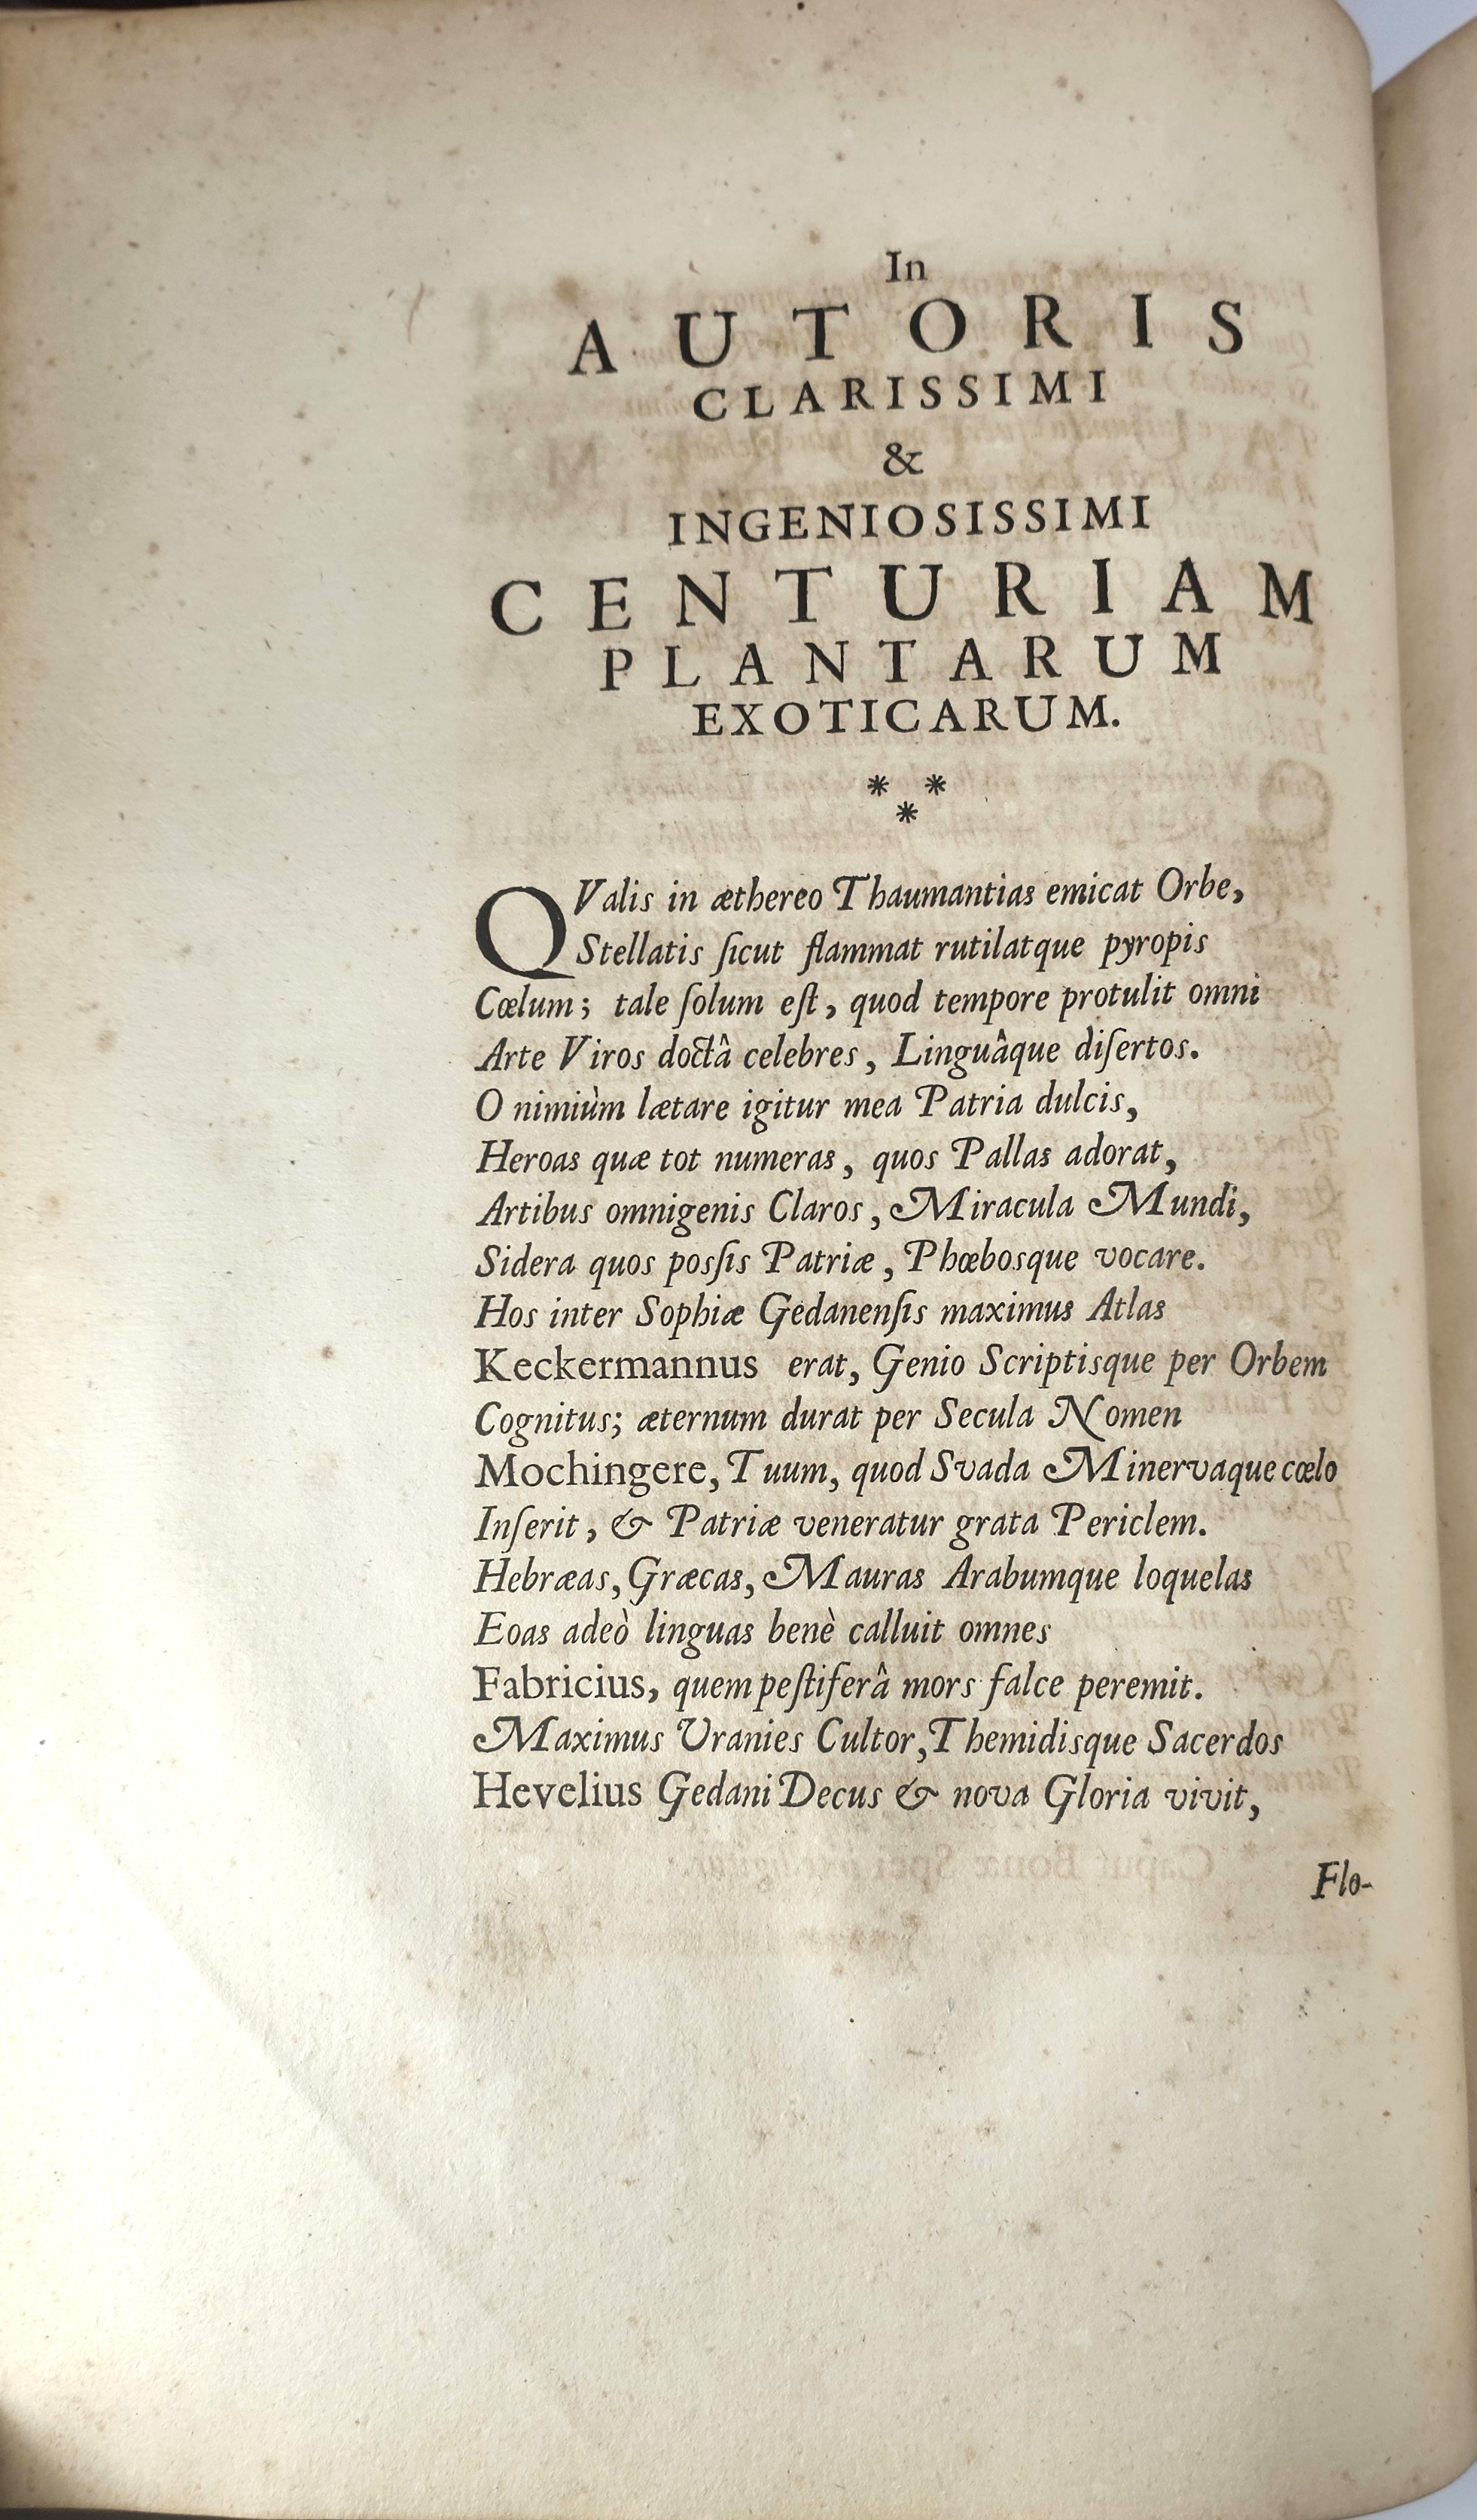 In
AUTORIS
CLARISSIMI
&
INGENIOSISSIMI
CENTURIAM
PLANTARUM
EXOTICARUM.
* *
*
QValis in æthereo Thaumantias emicat Orbe,
Stellatis ſicut flammat rutilatque pyropis
Cœlum; tale ſolum eſt, quod tempore protulit omni
Arte Viros doctâ celebres, Linguâque diſertos.
O nimiùm lætare igitur mea Patria dulcis,
Heroas quæ tot numeras, quos Pallas adorat,
Artibus omnigenis Claros, Miracula Mundi,
Sidera quos posſis Patriæ, Phœbosque vocare.
Hos inter Sophiæ Gedanenſis maximus Atlas
Keckermannus erat, Genio Scriptisque per Orbem
Cognitus; æternum durat per Secula Nomen
Mochingere, Tuum, quod Svada Minervaque cœlo
Inſerit, & Patriæ veneratur grata Periclem.
Hebræas, Græcas, Mauras Arabumque loquelas
Eoas adeò linguas benè calluit omnes
Fabricius, quem peſtiferâ mors falce peremit.
Maximus Uranies Cultor, Themidisque Sacerdos
Hevelius Gedani Decus & nova Gloria vivit,
Flo-